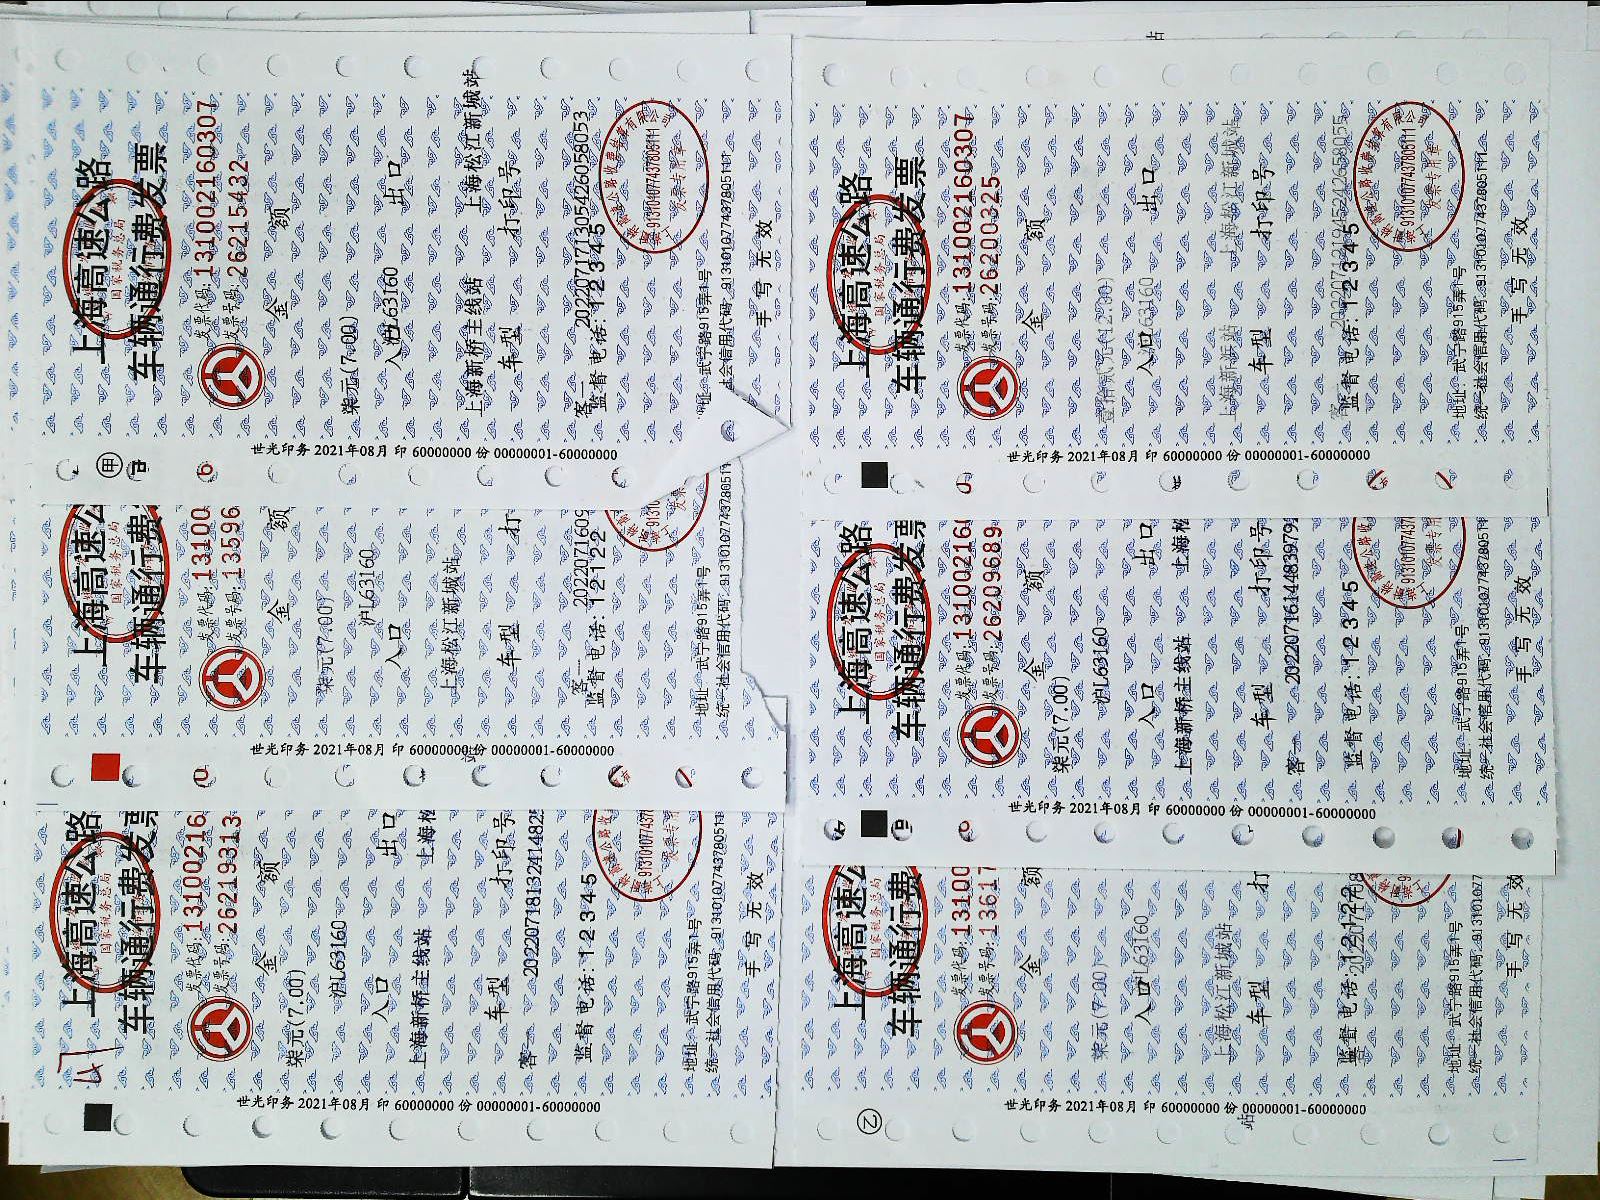 上海高速公路
车辆通行费发票
国家税务总局
发票代码:131002160307
发票号码:26215432
金 额
柒元(7.00)
入口 出口
沪L63160
上海新桥主线站 上海松江新城站
车型 打印号
客一 2022071713054260 58053
监督电话:12345
913101077437805111
发票专用章
址:武宁路915弄1号
手写无效
世光印务 2021年08月 印 60000000 份 00000001-60000000
上海高速公
车辆通行费
国家税务总局
发票代码:13100
发票号码:13596
金 额
柒元(7.00)
沪L63160
入口
上海松江新城站
车型 打
客一 202207160
监督电话:12122
地址:武宁路915弄1号
统一社会信用代码:91310107743780511
世光印务 2021年08月 印 60000000 份 00000001-60000000
上海高速公路
车辆通行费发票
国家税务总局
发票代码:13100216
发票号码:26219313
金 额
柒元(7.00)
沪L63160
入口 出口
上海新桥主线站 上海松
车型 打印号
客一 20220718132414482
监督电话:12345
发票专用
地址:武宁路915弄1号
统一社会信用代码:91310107743780511
手写无效
世光印务 2021年08月 印 60000000 份 00000001-60000000
上海高速公路
车辆通行费发票
国家税务总局
发票代码:131002160307
发票号码:26200325
金 额
壹拾贰元(12.00)
入口 出口
L63160
上海新浜站 上海松江新城站
车型 打印号
监督电话:12345
913101077437805111
发票专用章
地址:武宁路915弄1号
统一社会信用代码:913101077437805111
手写无效
世光印务 2021年08月 印 60000000 份 00000001-60000000
上海高速公路
车辆通行费发票
国家税务总局
发票代码:13100216
发票号码:26209689
金 额
柒元(7.00)
沪L63160
入口 出口
上海新桥主线站 上海松
车型 打印号
客一 2022071614483979
监督电话:12345
发票专用
地址:武宁路915弄1号
统一社会信用代码:9131010774378051
手写无效
世光印务 2021年08月 印 60000000 份 00000001-60000000
上海高速公
车辆通行费
国家税务总局
发票代码:13100
发票号码:13617
金 额
柒元(7.00)
入口 L63160
上海松江新城站
车型 打
监督电话:12122
地址:武宁路915弄1号
统一社会信用代码:913101077437805
手写无效
世光印务 2021年08月 印 60000000 份 00000001-60000000
②
站